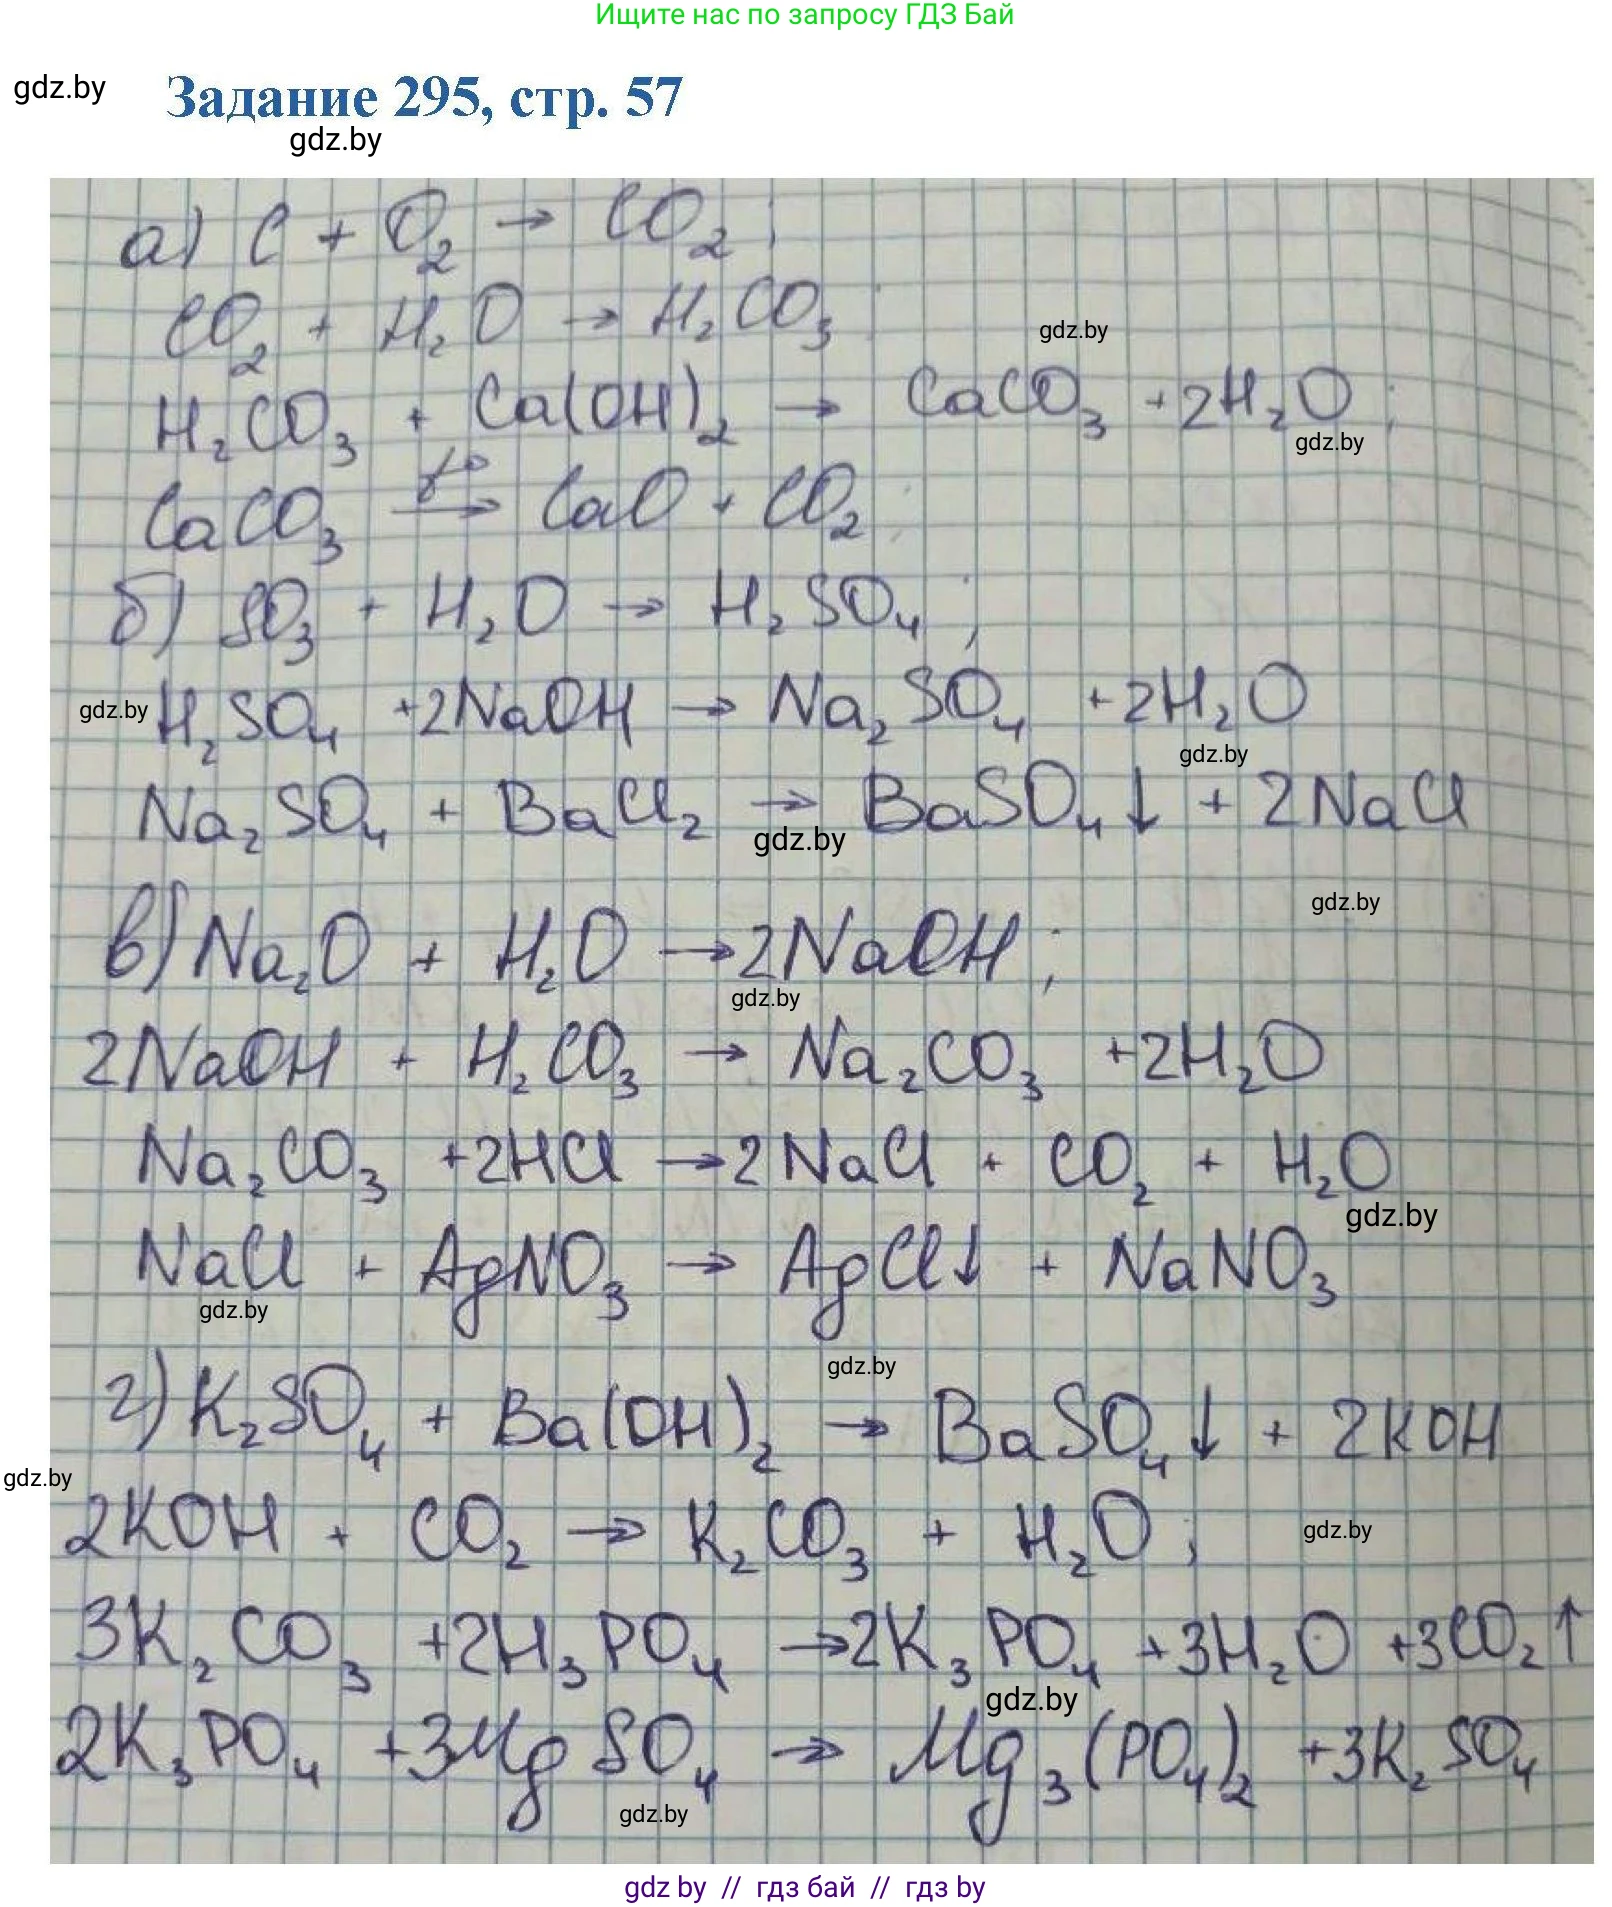 Ищите нас по запросу ГДЗ Бай
gdz.by
Задание 295, стр. 57
gdz.by
а) C + O₂ → CO₂ ;
CO₂ + H₂O → H₂CO₃
gdz.by
H₂CO₃ + Ca(OH)₂ → CaCO₃ + 2H₂O ;
gdz.by
CaCO₃ t°→ CaO + CO₂
б) SO₃ + H₂O → H₂SO₄ ;
gdz.by
H₂SO₄ + 2NaOH → Na₂SO₄ + 2H₂O
gdz.by
Na₂SO₄ + BaCl₂ → BaSO₄↓ + 2NaCl
gdz.by
gdz.by
в) Na₂O + H₂O → 2NaOH ;
gdz.by
2NaOH + H₂CO₃ → Na₂CO₃ + 2H₂O
Na₂CO₃ + 2HCl → 2NaCl + CO₂ + H₂O
gdz.by
NaCl + AgNO₃ → AgCl↓ + NaNO₃
gdz.by
gdz.by
г) K₂SO₄ + Ba(OH)₂ → BaSO₄↓ + 2KOH
gdz.by
2KOH + CO₂ → K₂CO₃ + H₂O ;
gdz.by
3K₂CO₃ + 2H₃PO₄ → 2K₃PO₄ + 3H₂O + 3CO₂↑
gdz.by
2K₃PO₄ + 3MgSO₄ → Mg₃(PO₄)₂ + 3K₂SO₄
gdz.by
gdz by // гдз бай // гдз by